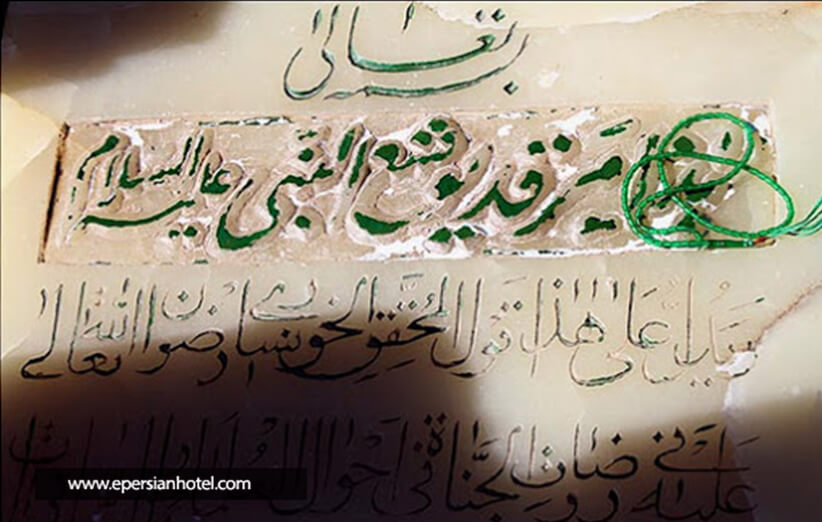 بسمه تعالی
هذا مرقد یوشع النبی علیه السلام
ویدل علی هذا قول المحقق الخونساری رضوان الله تعالی
علیه فی روضات الجنات فی احوال
www.epersianhotel.com